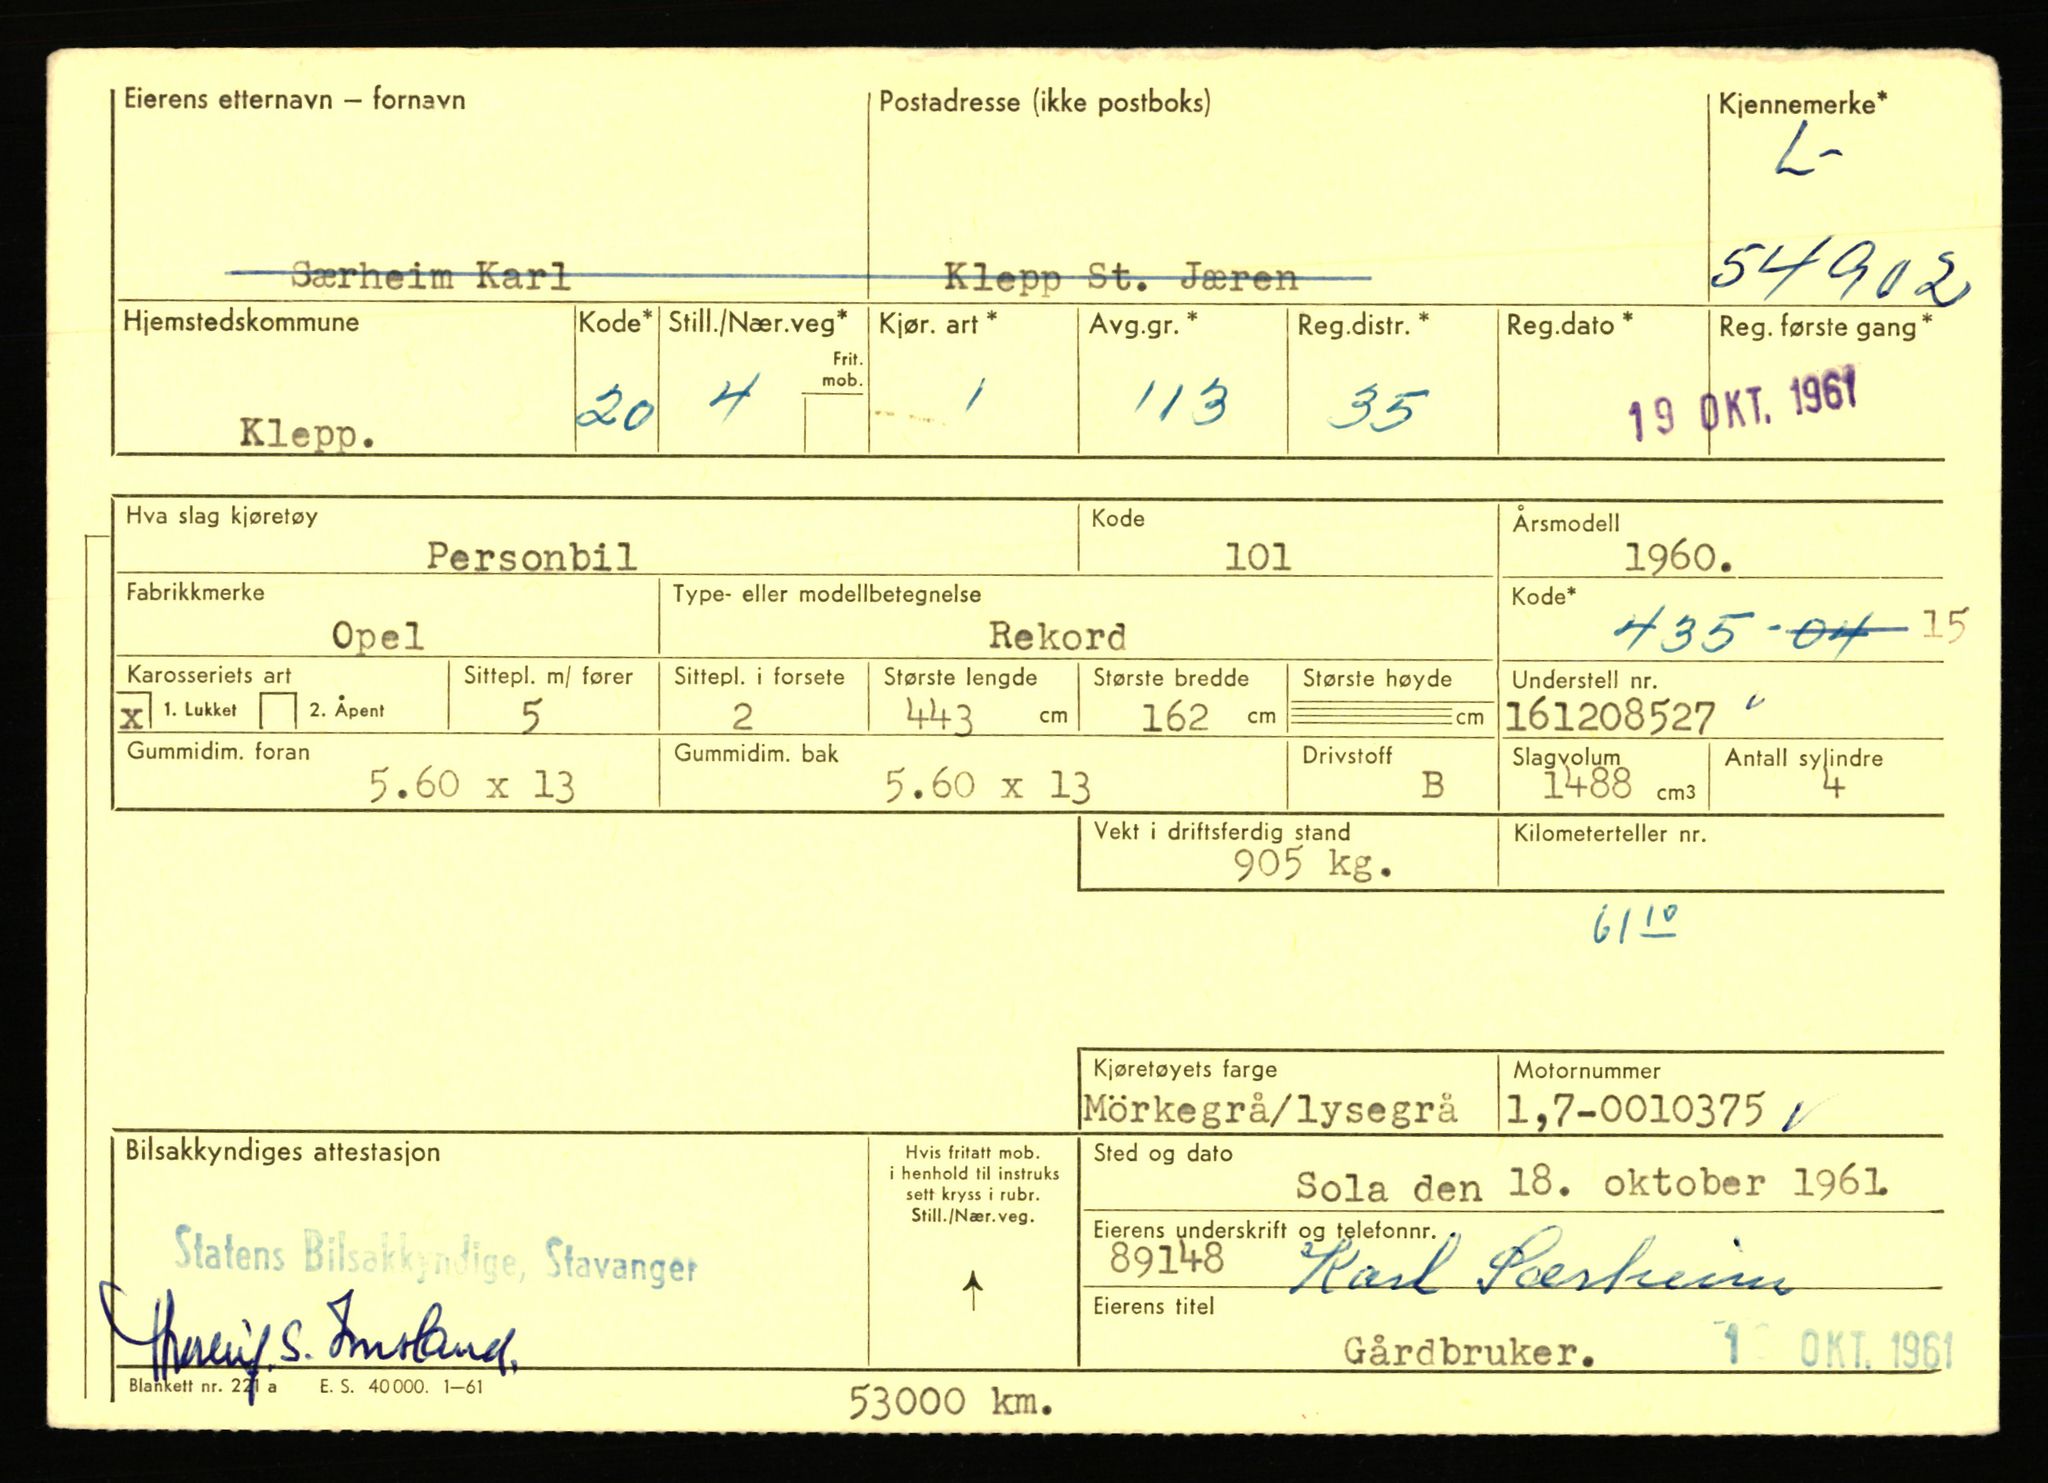 Eierens etternavn – fornavn Postadresse (ikke postboks) Kjennemerke*
L-
Særheim Karl Klepp St. Jæren 54902
Hjemstedskommune Kode* Still./Nær.veg* Kjør. art* Avg.gr.* Reg.distr.* Reg.dato* Reg. første gang*
Frit.
mob.
Klepp. 20 4 1 113 35 19 OKT. 1961
Hva slag kjøretøy Kode Årsmodell
Personbil 101 1960.
Fabrikkmerke Type- eller modellbetegnelse Kode*
Opel Rekord 435-04 15
Karosseriets art Sittepl. m/ fører Sittepl. i forsete Største lengde Største bredde Største høyde Understell nr.
x 1. Lukket 2. Åpent 5 2 443 cm 162 cm cm 161208527
Gummidim. foran Gummidim. bak Drivstoff Slagvolum Antall sylindre
5.60 x 13 5.60 x 13 B 1488 cm3 4
Vekt i driftsferdig stand Kilometerteller nr.
905 kg.
61 10
Kjøretøyets farge Motornummer
Mörkegrå/lysegrå 1,7-0010375
Bilsakkyndiges attestasjon Hvis fritatt mob.
i henhold til instruks
sett kryss i rubr.
Still./Nær.veg.
Sted og dato
Sola den 18. oktober 1961.
Statens Bilsakkyndige, Stavanger
Eierens underskrift og telefonnr.
89148 Karl Særheim
Eierens titel
S. Imsland.
Gårdbruker. OKT. 1961
Blankett nr. 221 a E. S. 40000. 1–61
53000 km.